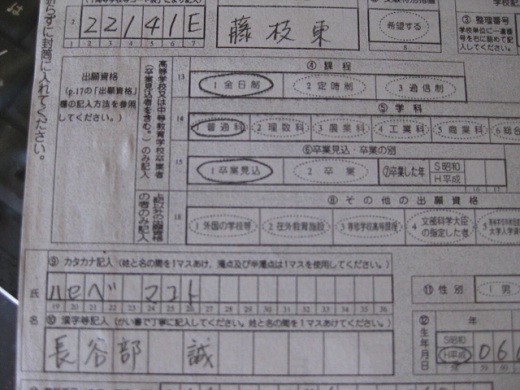 2 2 2 1 4 1 E 藤枝東 希望する
③ 整理番号
学校単位に一連番
号を右に詰めて記
入してください。
折らずに封筒に入れてください。
出願資格
(p.17の「出願資格」
欄の記入方法を参照
してください。)
高等学校又は中等教育学校卒業者
(卒業見込者を含む。)のみ記入
④ 課程
13 1 全日制 2 定時制 3 通信制
⑤ 学科
1 普通科 2 理数科 3 農業科 4 工業科 5 商業科 6 総合
⑥ 卒業見込・卒業の別
15 1 卒業見込 2 卒業 ⑦卒業した年 S昭和 H平成 16 17
上記以外の出願資格
の者のみ記入
⑧ その他の出願資格
18 1 外国の学校等 2 在外教育施設 3 専修学校高等課程 4 文部科学大臣の指定した者 5
氏名
⑨ カタカナ記入 (姓と名の間を1マスあけ、濁点及び半濁点は1マスを使用してください。)
ハセベ マコト
19 20 21 22 23 24 25 26 27 28 29 30 31 32 33 34 35 36
⑪ 性別 1 男
⑩ 漢字等記入 (かい書で丁寧に記入してください。姓と名の間を1マスあけてください。)
長谷部 誠
⑫ 生年月日 年 S昭和 H平成 0 6 0